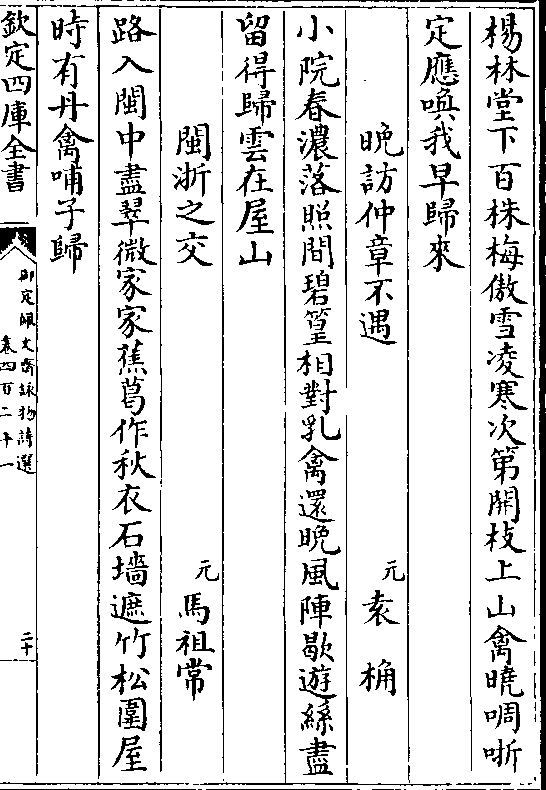 楊林堂下百株梅傲雪凌寒次第開枝上山禽曉啁哳
定應喚我早歸來
晚訪仲章不遇
元袁桷
小院春濃落照間碧篁相對乳禽還晚風陣歇遊絲盡
留得歸雲在屋山
閩浙之交
元馬祖常
路入閩中盡翠微家家蕉葛作秋衣石墻遮竹松圍屋
時有丹禽哺子歸
欽定四庫全書
御定佩文齋詠物詩選
卷四百二十一
二十